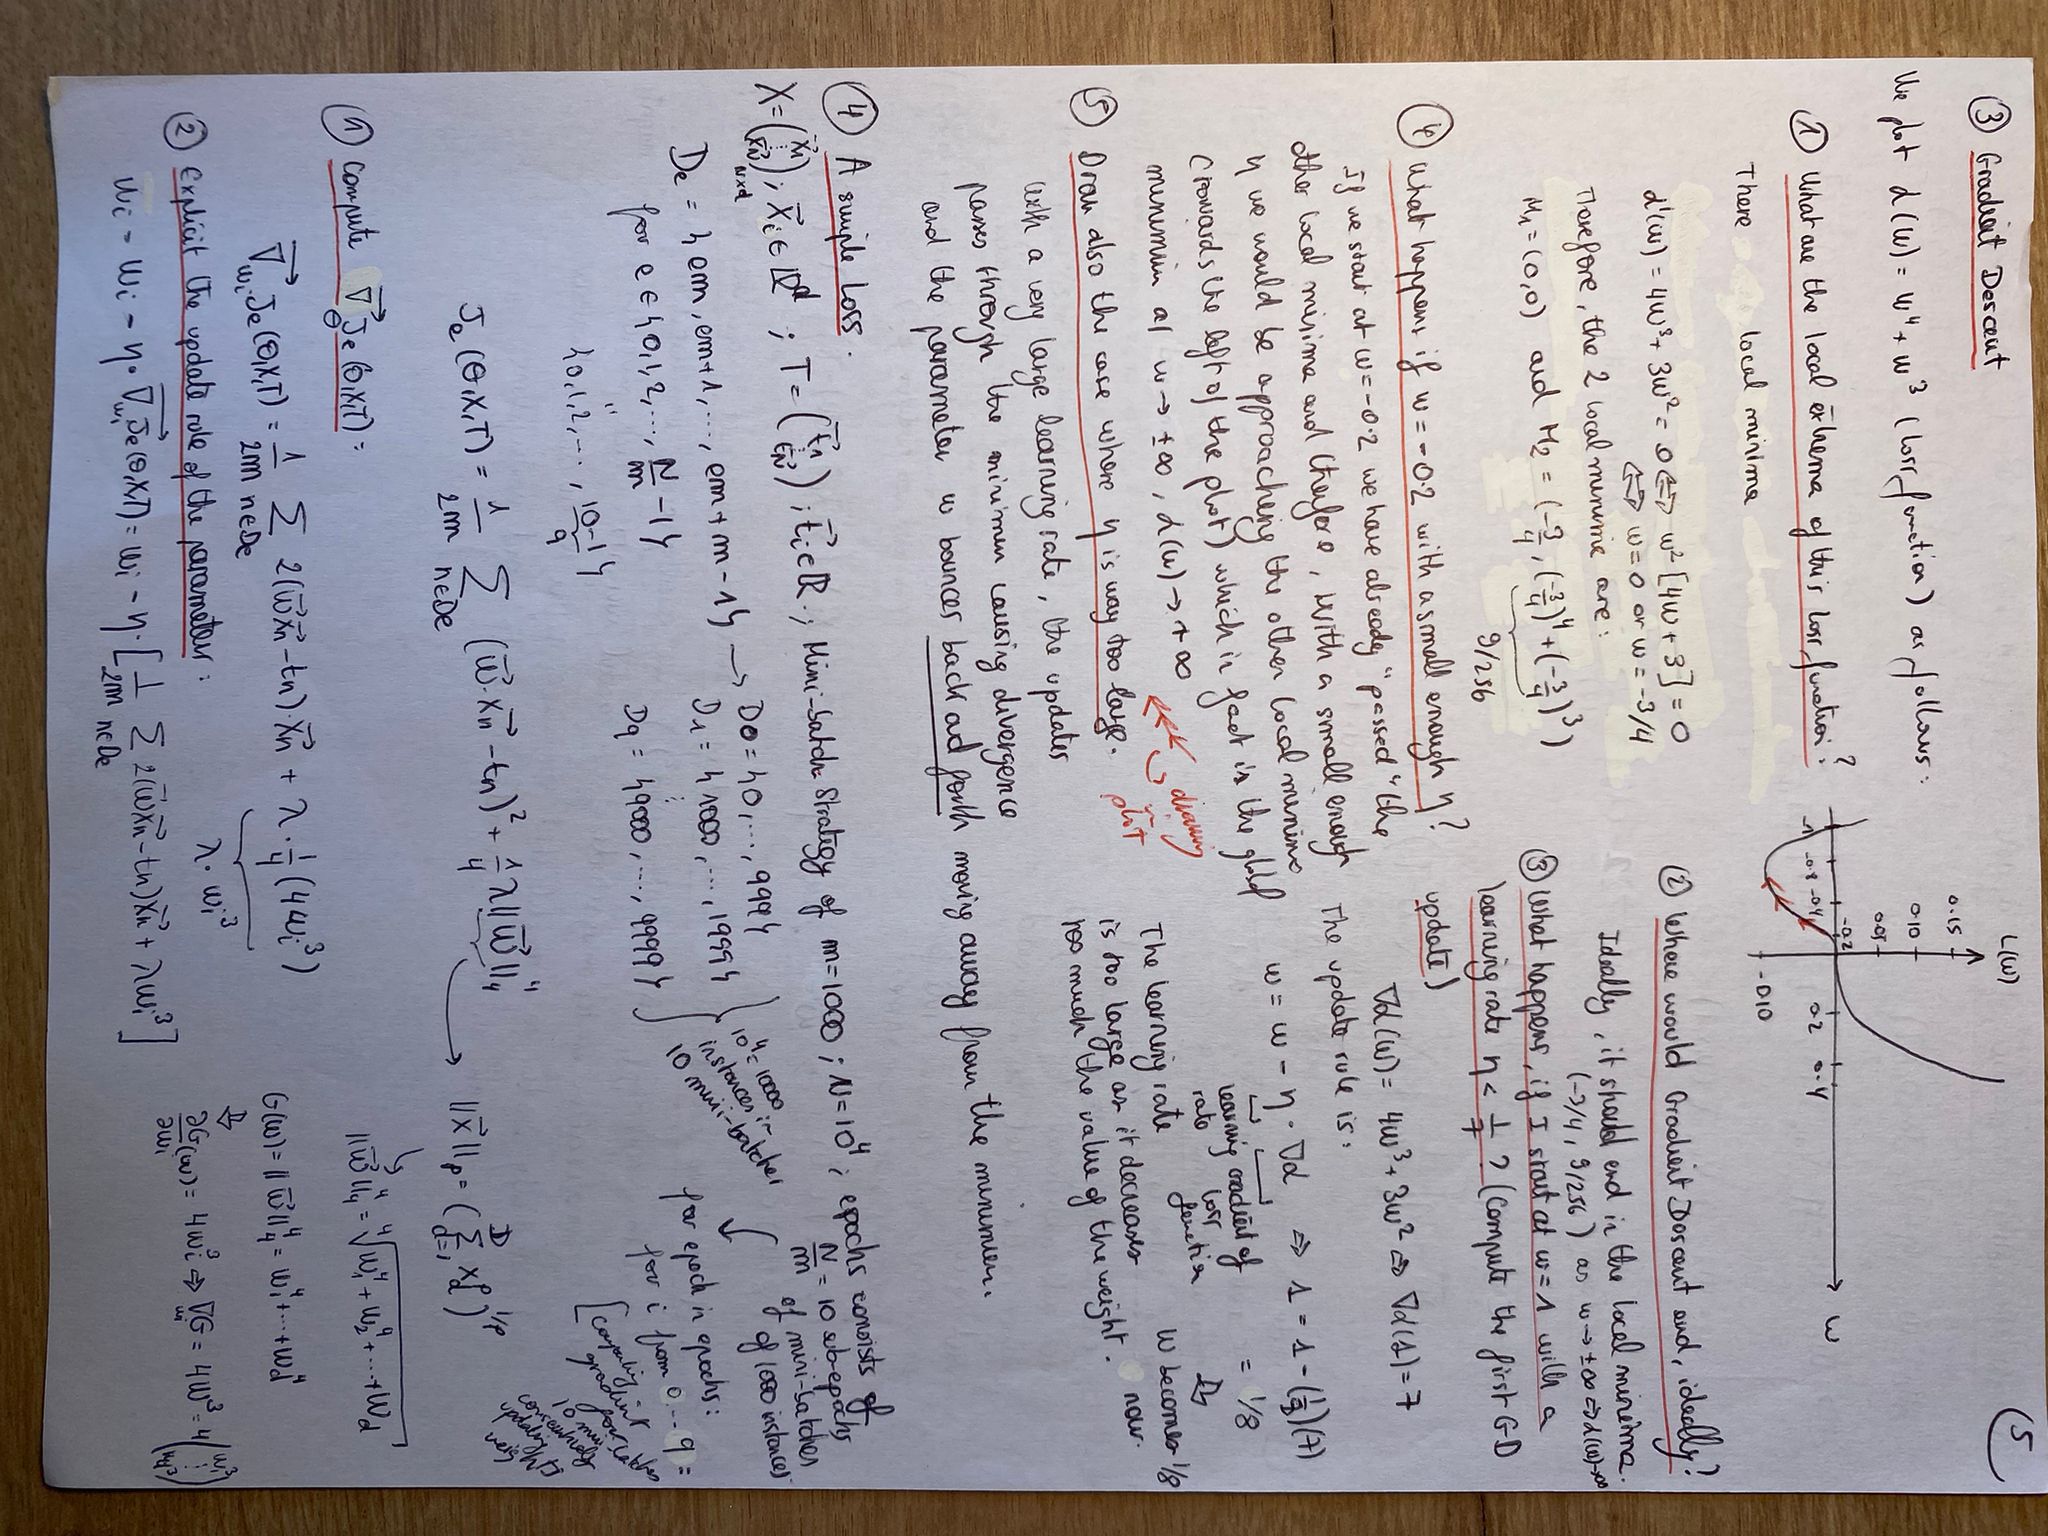 5
③ Gradient Descent
We plot L(w) = w⁴ + w³ (loss function) as follows:
L(w)
0.15
0.10
0.05
-0.2
-1 -0.8 -0.4 0.2 0.4 w
-0.10
① What are the local extrema of this loss function?
There local minima
L'(w) = 4w³ + 3w² = 0 ⟺ w² [4w + 3] = 0
⟺ w = 0 or w = -3/4
Therefore, the 2 local minima are:
M₁ = (0,0) and M₂ = (-3/4, (-3/4)⁴ + (-3/4)³)
9/256
② Where would Gradient Descent end, ideally?
Ideally, it should end in the local minima.
(-3/4, 9/256) as w → ±∞ ⇔ L(w) → ∞
③ What happens, if I start at w = 1 with a
learning rate η < 1/7 ? (Compute the first GD
update)
∇L(w) = 4w³ + 3w² ⇒ ∇L(1) = 7
The update rule is:
w = w - η · ∇L ⇒ 1 = 1 - (1/8)(7)
= 1/8
learning rate
gradient of loss function
w becomes 1/8
now.
The learning rate
is too large as it decreases
too much the value of the weight.
④ What happens if w = -0.2 with a small enough η?
If we start at w = -0.2 we have already "passed" the
other local minima and therefore, with a small enough
η we would be approaching the other local minima
(towards the left of the plot) which in fact is the global
minimum as w → ±∞, L(w) → +∞
drawing
in
plot
⑤ Draw also the case where η is way too large.
With a very large learning rate, the updates
passes through the minimum causing divergence
and the parameter w bounces back and forth moving away from the minimum.
④ A simple Loss.
X = (x₁ ⋮ x_N)_{N×d} ; x⃗ᵢ ∈ ℝᵈ ; T = (t⃗₁ ⋮ t_N) ; t⃗ᵢ ∈ ℝ ; Mini-batch Strategy of m = 1000 ; N = 10⁴ ; epochs consists of
N/m = 10 sub-epochs
of mini-batches
of 1000 instances
De = {em, em+1, ..., em+m-1} → D0 = {0, ..., 999}
for e ∈ {0,1,2, ..., N/m - 1}
D1 = {1000, ..., 1999}
⋮
D9 = {9000, ..., 9999}
10⁴ = 10000
instances in
10 mini-batches
" {0,1,2, ..., 10-1}
9
for epoch in epochs:
for i from 0 ... 9 =
[computing
gradient
for
10 mini-batches
consecutively
updating
weights
Je(θ,X,T) = 1/2m Σ_{n∈De} (w⃗·x⃗n - tn)² + 1/4 λ‖w⃗‖₄⁴
‖x⃗‖p = (Σ_{d=1}^{D} x_d^p)^{1/p}
‖w⃗‖₄⁴ = ⁴√(w₁⁴ + w₂⁴ + ... + w_d)
① Compute ∇⃗_θ Je(θ,X,T) =
∇⃗_{wi} Je(θ,X,T) = 1/2m Σ_{n∈De} 2(w⃗x⃗n - tn)·x⃗n + λ·1/4 (4wi³)
λ·wi³
G(w) = ‖w⃗‖₄⁴ = wi⁴ + ... + wd⁴
∂G/∂wi (w) = 4wi³ ⇒ ∇G_{wi} = 4w³ = 4(wi³ ⋮ wd³)
② Explicit the update rule of the parameter:
wi = wi - η·∇⃗_{wi}Je(θ,X,T) = wi - η·[1/2m Σ_{n∈De} 2(w⃗x⃗n - tn)x⃗n + λwi³]